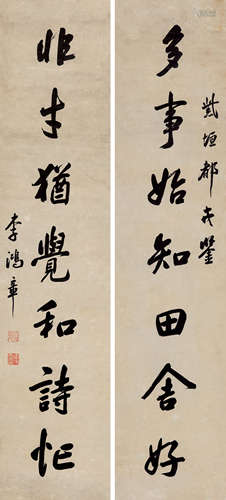 紫垣都戎鑒
多事始知田舍好
非才猶覺和詩忙
李鴻章